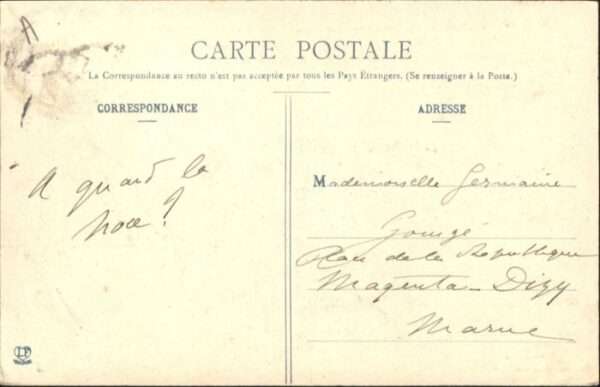 CARTE POSTALE
La Correspondance au recto n'est pas acceptée par tous les Pays Étrangers. (Se renseigner à la Poste.)
CORRESPONDANCE
ADRESSE
A quand la
noce?
Mademoiselle Germaine
Place de la République
Magenta-Dizy
Marne